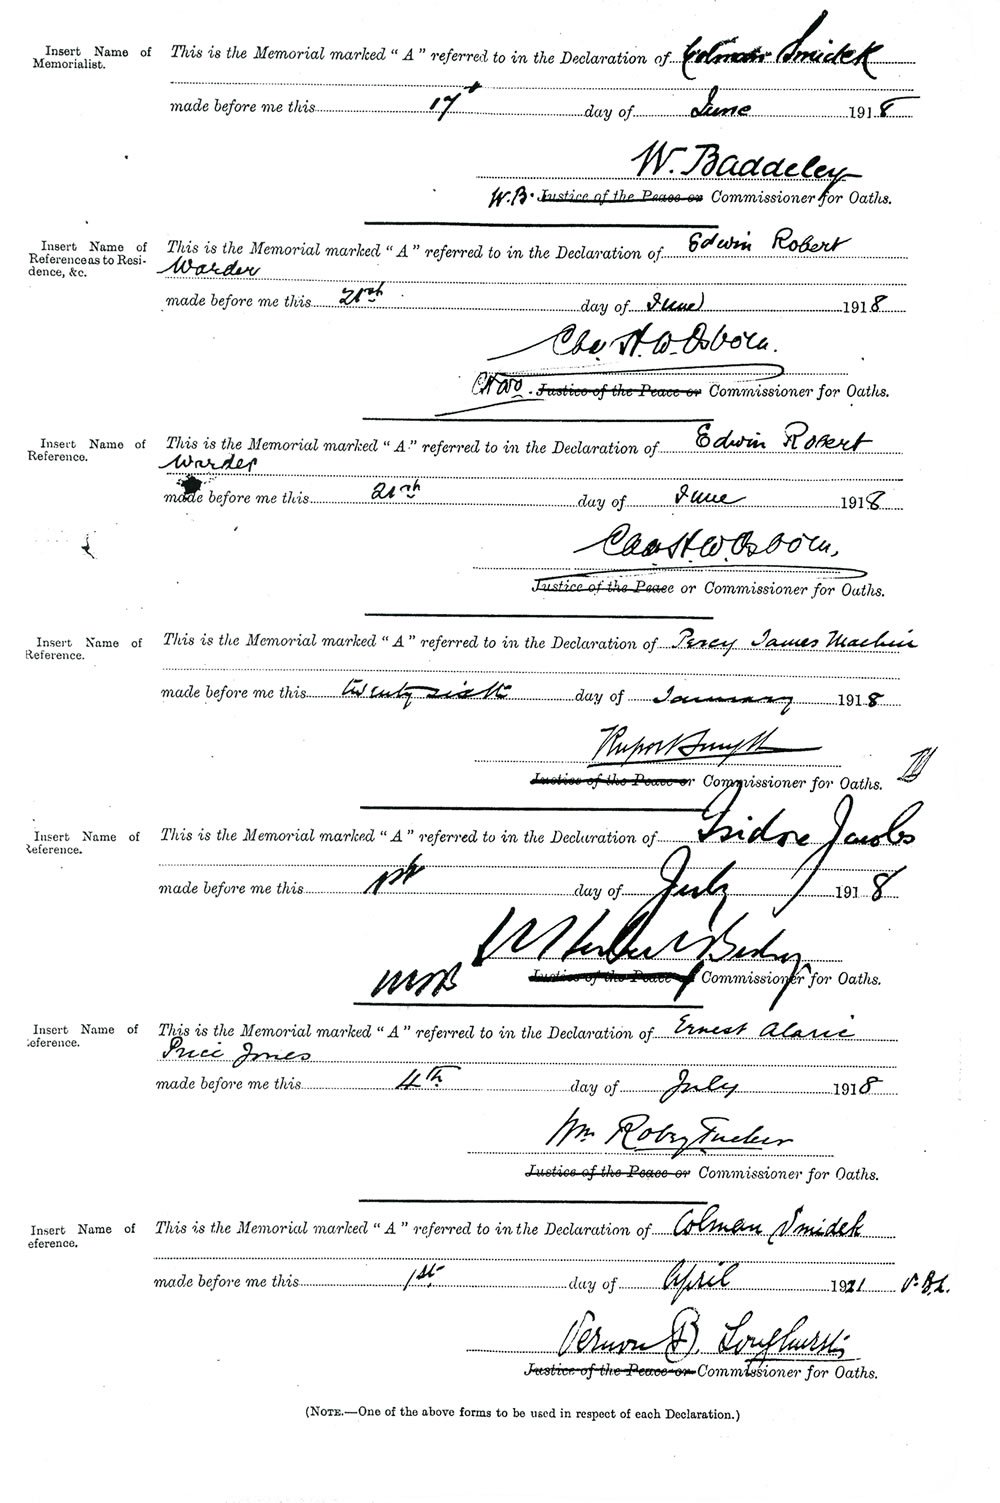 Insert Name of Memorialist.
This is the Memorial marked “ A ” referred to in the Declaration of Colman Smidek
made before me this 17th day of June 1918
W. Baddeley
W.B. Justice of the Peace or Commissioner for Oaths.
Insert Name of Reference as to Residence, &c.
This is the Memorial marked “ A ” referred to in the Declaration of Edwin Robert
Warder
made before me this 21st day of June 1918
Chas H. W. Osborn.
CHWO. Justice of the Peace or Commissioner for Oaths.
Insert Name of Reference.
This is the Memorial marked “ A ” referred to in the Declaration of Edwin Robert
Warder
made before me this 21st day of June 1918
Chas H. W. Osborn.
Justice of the Peace or Commissioner for Oaths.
Insert Name of Reference.
This is the Memorial marked “ A ” referred to in the Declaration of Percy James Machin
made before me this twenty sixth day of January 1918
Rupert Smyth
Justice of the Peace or Commissioner for Oaths.
Insert Name of Reference.
This is the Memorial marked “ A ” referred to in the Declaration of Isidore Jacobs
made before me this 1st day of July 1918
Justice of the Peace or Commissioner for Oaths.
Insert Name of eference.
This is the Memorial marked “ A ” referred to in the Declaration of Ernest Alaric
Price Jones
made before me this 4th day of July 1918
Wm Roby Tucker
Justice of the Peace or Commissioner for Oaths.
Insert Name of eference.
This is the Memorial marked “ A ” referred to in the Declaration of Colman Smidek
made before me this 1st day of April 1921 V.B.L.
Vernon B. Longhurst
Justice of the Peace or Commissioner for Oaths.
(NOTE.—One of the above forms to be used in respect of each Declaration.)